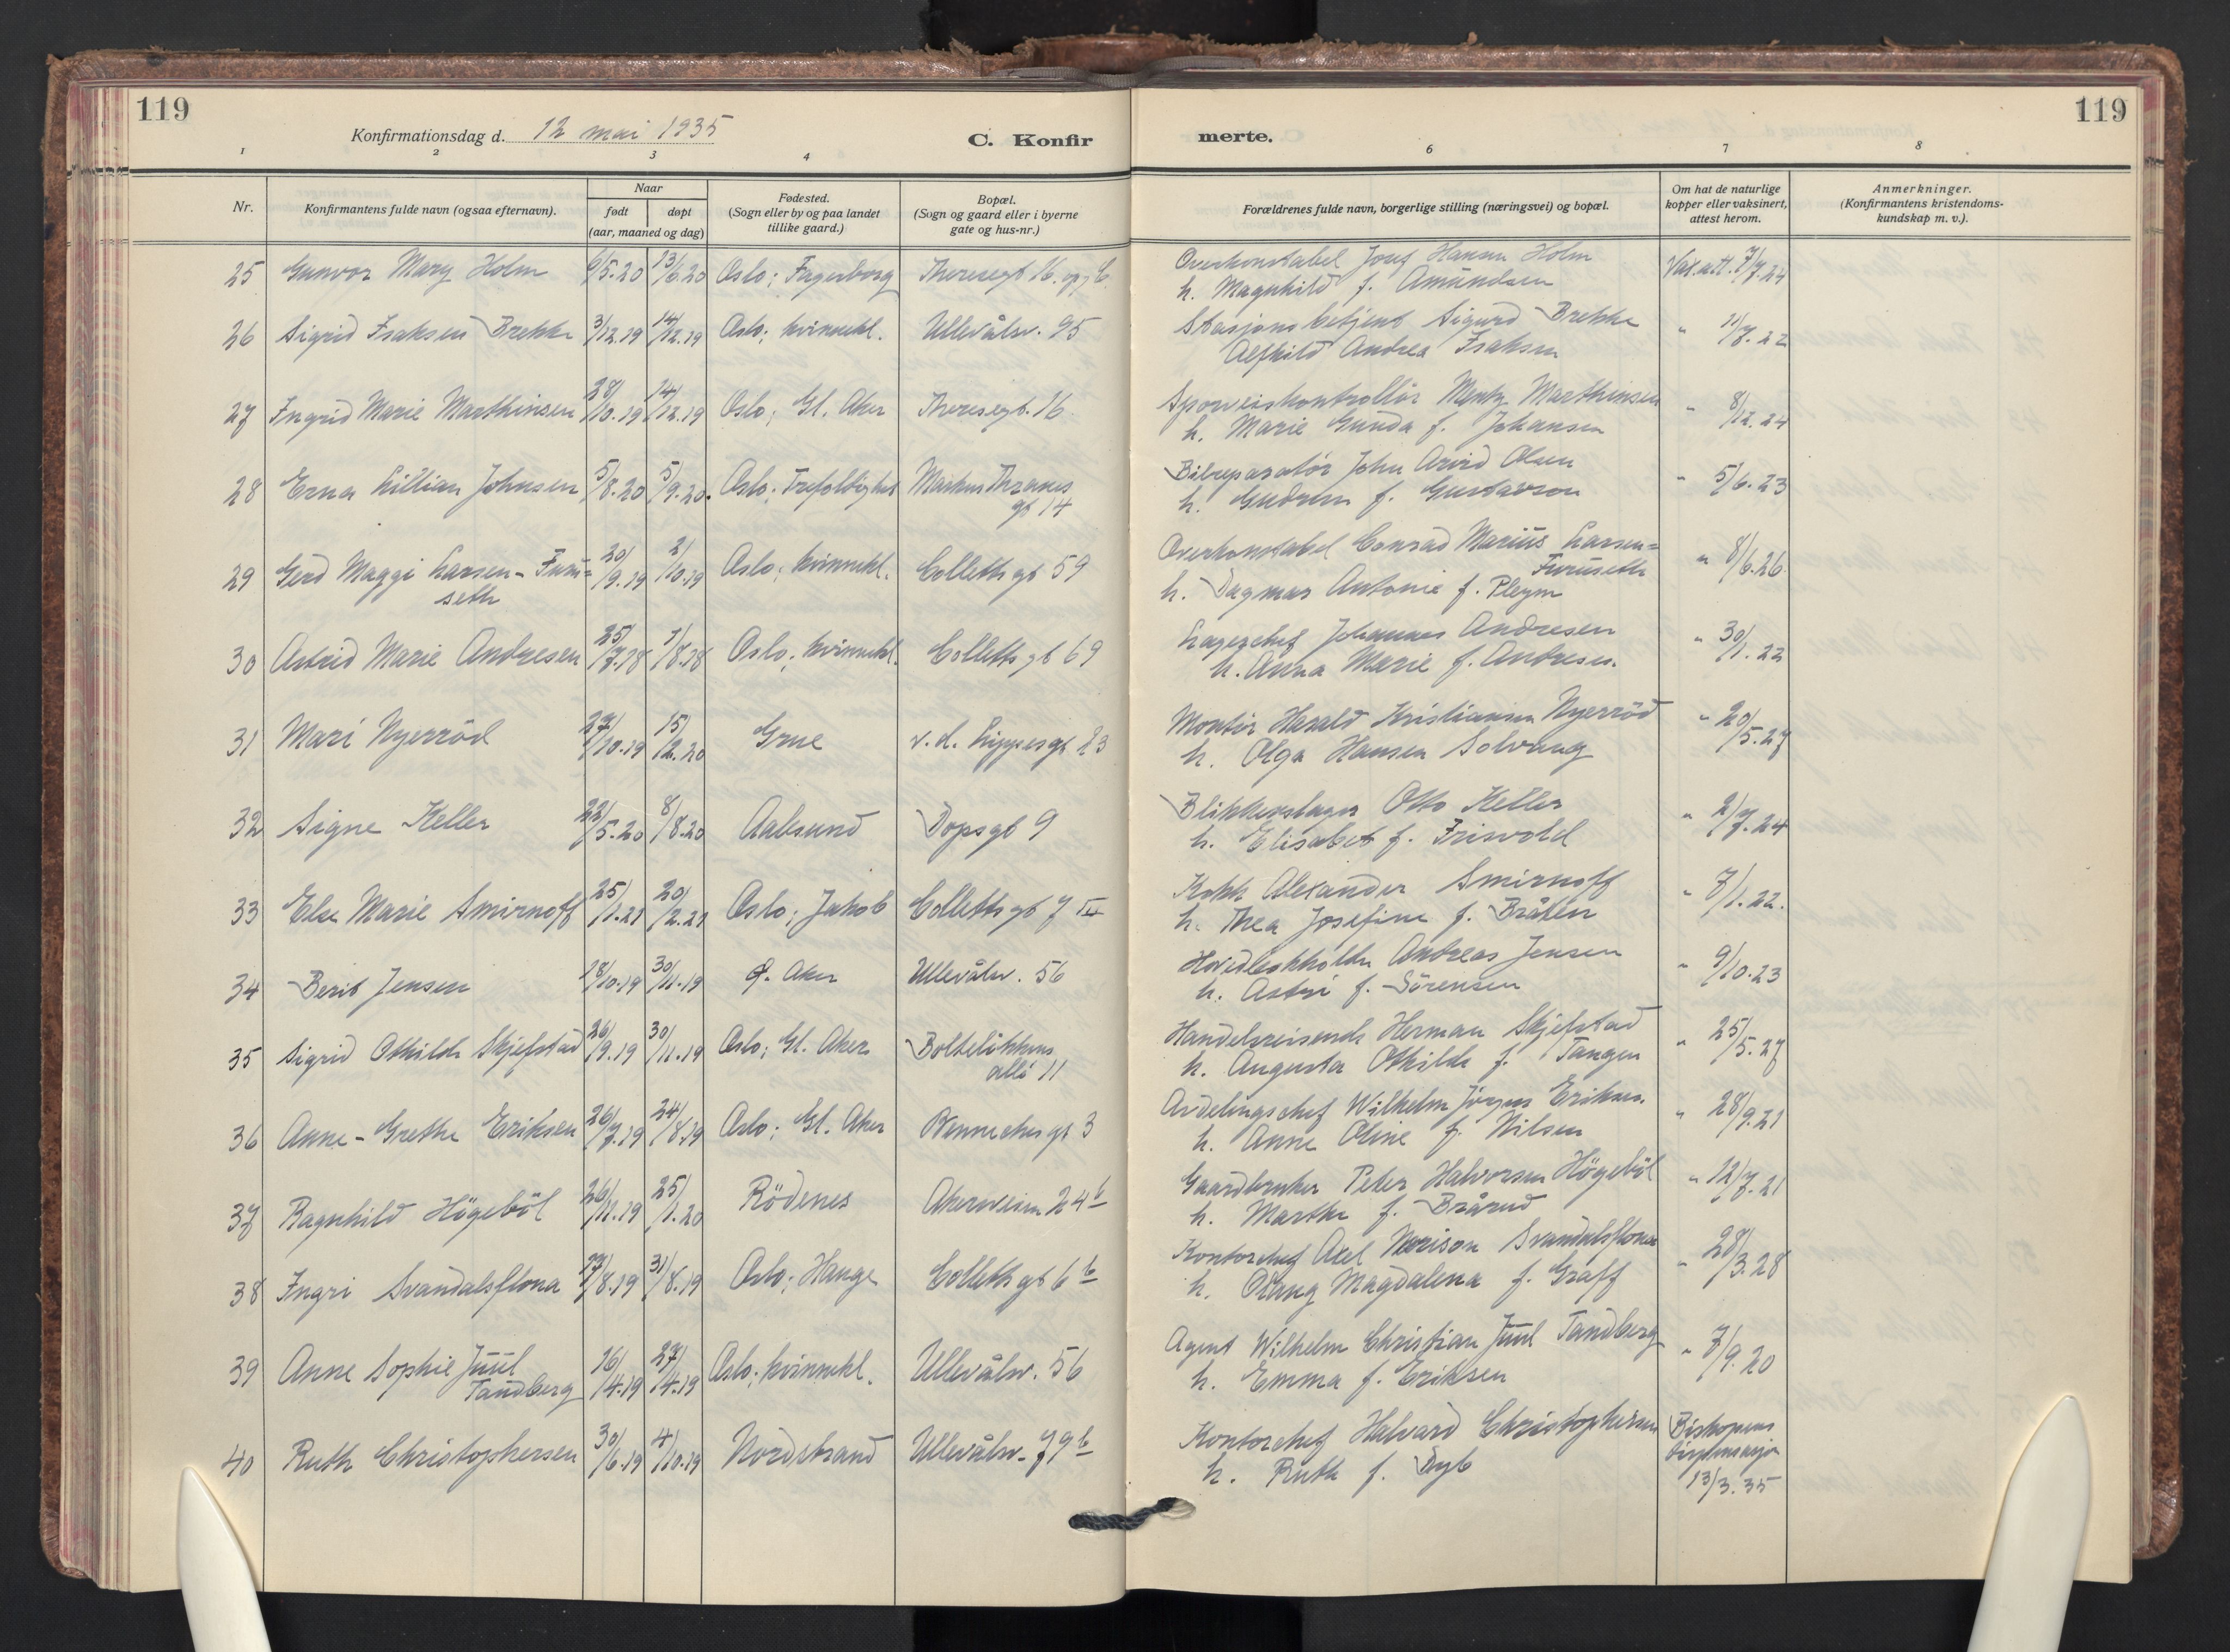 119
119
Konfirmationsdag d. 12 mai 1935
C. Konfir
merte.
1 2 3 4 6 7 8
Nr.
Konfirmantens fulde navn (ogsaa efternavn).
Naar
født døpt
(aar, maaned og dag)
Fødested.
(Sogn eller by og paa landet
tillike gaard.)
Bopæl.
(Sogn og gaard eller i byerne
gate og hus-nr.)
Forældrenes fulde navn, borgerlige stilling (næringsvei) og bopæl.
Om hat de naturlige
kopper eller vaksinert,
attest herom.
Anmerkninger.
(Konfirmantens kristendoms-
kundskap m. v.).
25 Gunvor Mary Holm 6/5.20 13/6.20 Oslo; Fagerborg Theresegt 16. opg
Overkonstabel Josef Hansen Holm
h. Magnhild f. Amundsen
Vax.att. 7/7.24
26 Sigrid Isaksen Brekke 3/12.19 14/12.19 Oslo; kvinnekl. Ullevålsv. 95
Stasjonsbetjent Sigurd Brekke
Alfhild Andrea Isaksen
" 11/7.22
27 Ingrid Marie Marthinsen 28/10.19 14/12.19 Oslo; Gl. Aker Theresegt. 16
Sporveiskontrollör Mentz Marthinsen
h. Marie Gunda f. Johansen
" 8/12.24
28 Erna Lillian Johnsen 5/8.20 5/9.20. Oslo; Trefoldighet Markus Thranes
gt 14
Bilreparatör John Arvid Olsen
h. Gudrun f. Gustavson
" 5/6.23
29 Gerd Maggi Larsen-Furu=
seth
20/9.19 2/10.19 Oslo; kvinnekl. Colletts gt 59
Overkonstabel Conrad Marius Larsen=
Furuseth
h. Dagmar Antonie f. Pleym
" 8/6.26.
30 Astrid Marie Andresen 25/7.18 7/8.18 Oslo; kvinnekl. Colletts gt 69
Lagerchef Johannes Andresen
h. Anna Marie f. Andresen.
" 30/1.22
31 Mari Nyerröd 27/10.19 15/2.20 Grue v. d. Lippesgt 23
Montör Harald Kristiansen Nyerröd
h. Olga Hansen Solvang
" 20/5.27
32 Signe Keller 22/5.20 8/8.20 Aalesund Dopsgt 9
Blikkenslager Otto Keller
h. Elisabet f. Frisvold
" 2/7.24
33 Else Marie Smirnoff 25/1.21 20/2.21 Oslo; Jakob Colletts gt 7 III
Kokk Alexander Smirnoff
h. Thea Josefine f. Bråten
" 7/1.22.
34 Berit Jensen 28/10.19 30/11.19 Aker Ullevålsv. 56
Hovedbokholder Andreas Jensen
h. Astri f. Sörensen
" 9/10.23
35 Sigrid Othilde Skjefstad 26/9.19 30/11.19 Oslo; Gl. Aker Bolteløkkens
allé 11
Handelsreisende Herman Skjefstad
h. Augusta Othilde f. Tangen
" 25/5.27
36 Anne-Grethe Eriksen 26/7.19 24/8.19 Oslo; Gl. Aker Bennechesgt 3
Avdelingschef Wilhelm Jörgen Eriksen.
h. Anne Oline f. Nilsen
" 28/9.21
37 Ragnhild Högeböl 26/11.19 25/1.20 Rödenes Akersveien 24 b
Gaardbruker Peter Halvorsen Högeböl
h. Marthe f. Brårud
" 12/7.21
38 Ingri Svandalsflona 17/8.19 31/8.19 Oslo; Hauge Colletts gt 6 b
Kontorchef Axel Svandalsflona
h. Magdalena f. Graff
" 28/3.28
39 Anne Sophie Juul
Tandberg
16/4.19 27/4.19 Oslo; kvinnekl. Ullevålsv. 56
Agent Wilhelm Christian Juul Tandberg
h. Emma f. Eriksen
" 7/9.20
40 Ruth Christophersen 30/6.19 4/10.19 Nordstrand Ullevålsv. 79 b
Kontorchef Halvard Christophersen
h. Ruth f. Dyb
Biskopens
dispensasjon
13/3.35